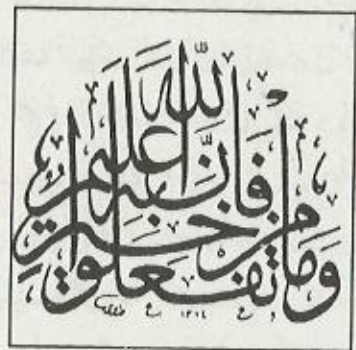 وَمَا تَفْعَلُوا مِنْ خَيْرٍ فَإِنَّ اللَّهَ بِهِ عَلِيمٌ
١٣١٤